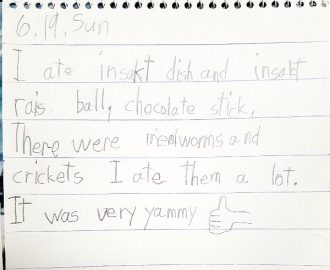 6.19. Sun
I ate insakt dish and insakt
rais ball, chocolate stick.
There were mealworms and
crickets I ate them a lot.
It was very yammy